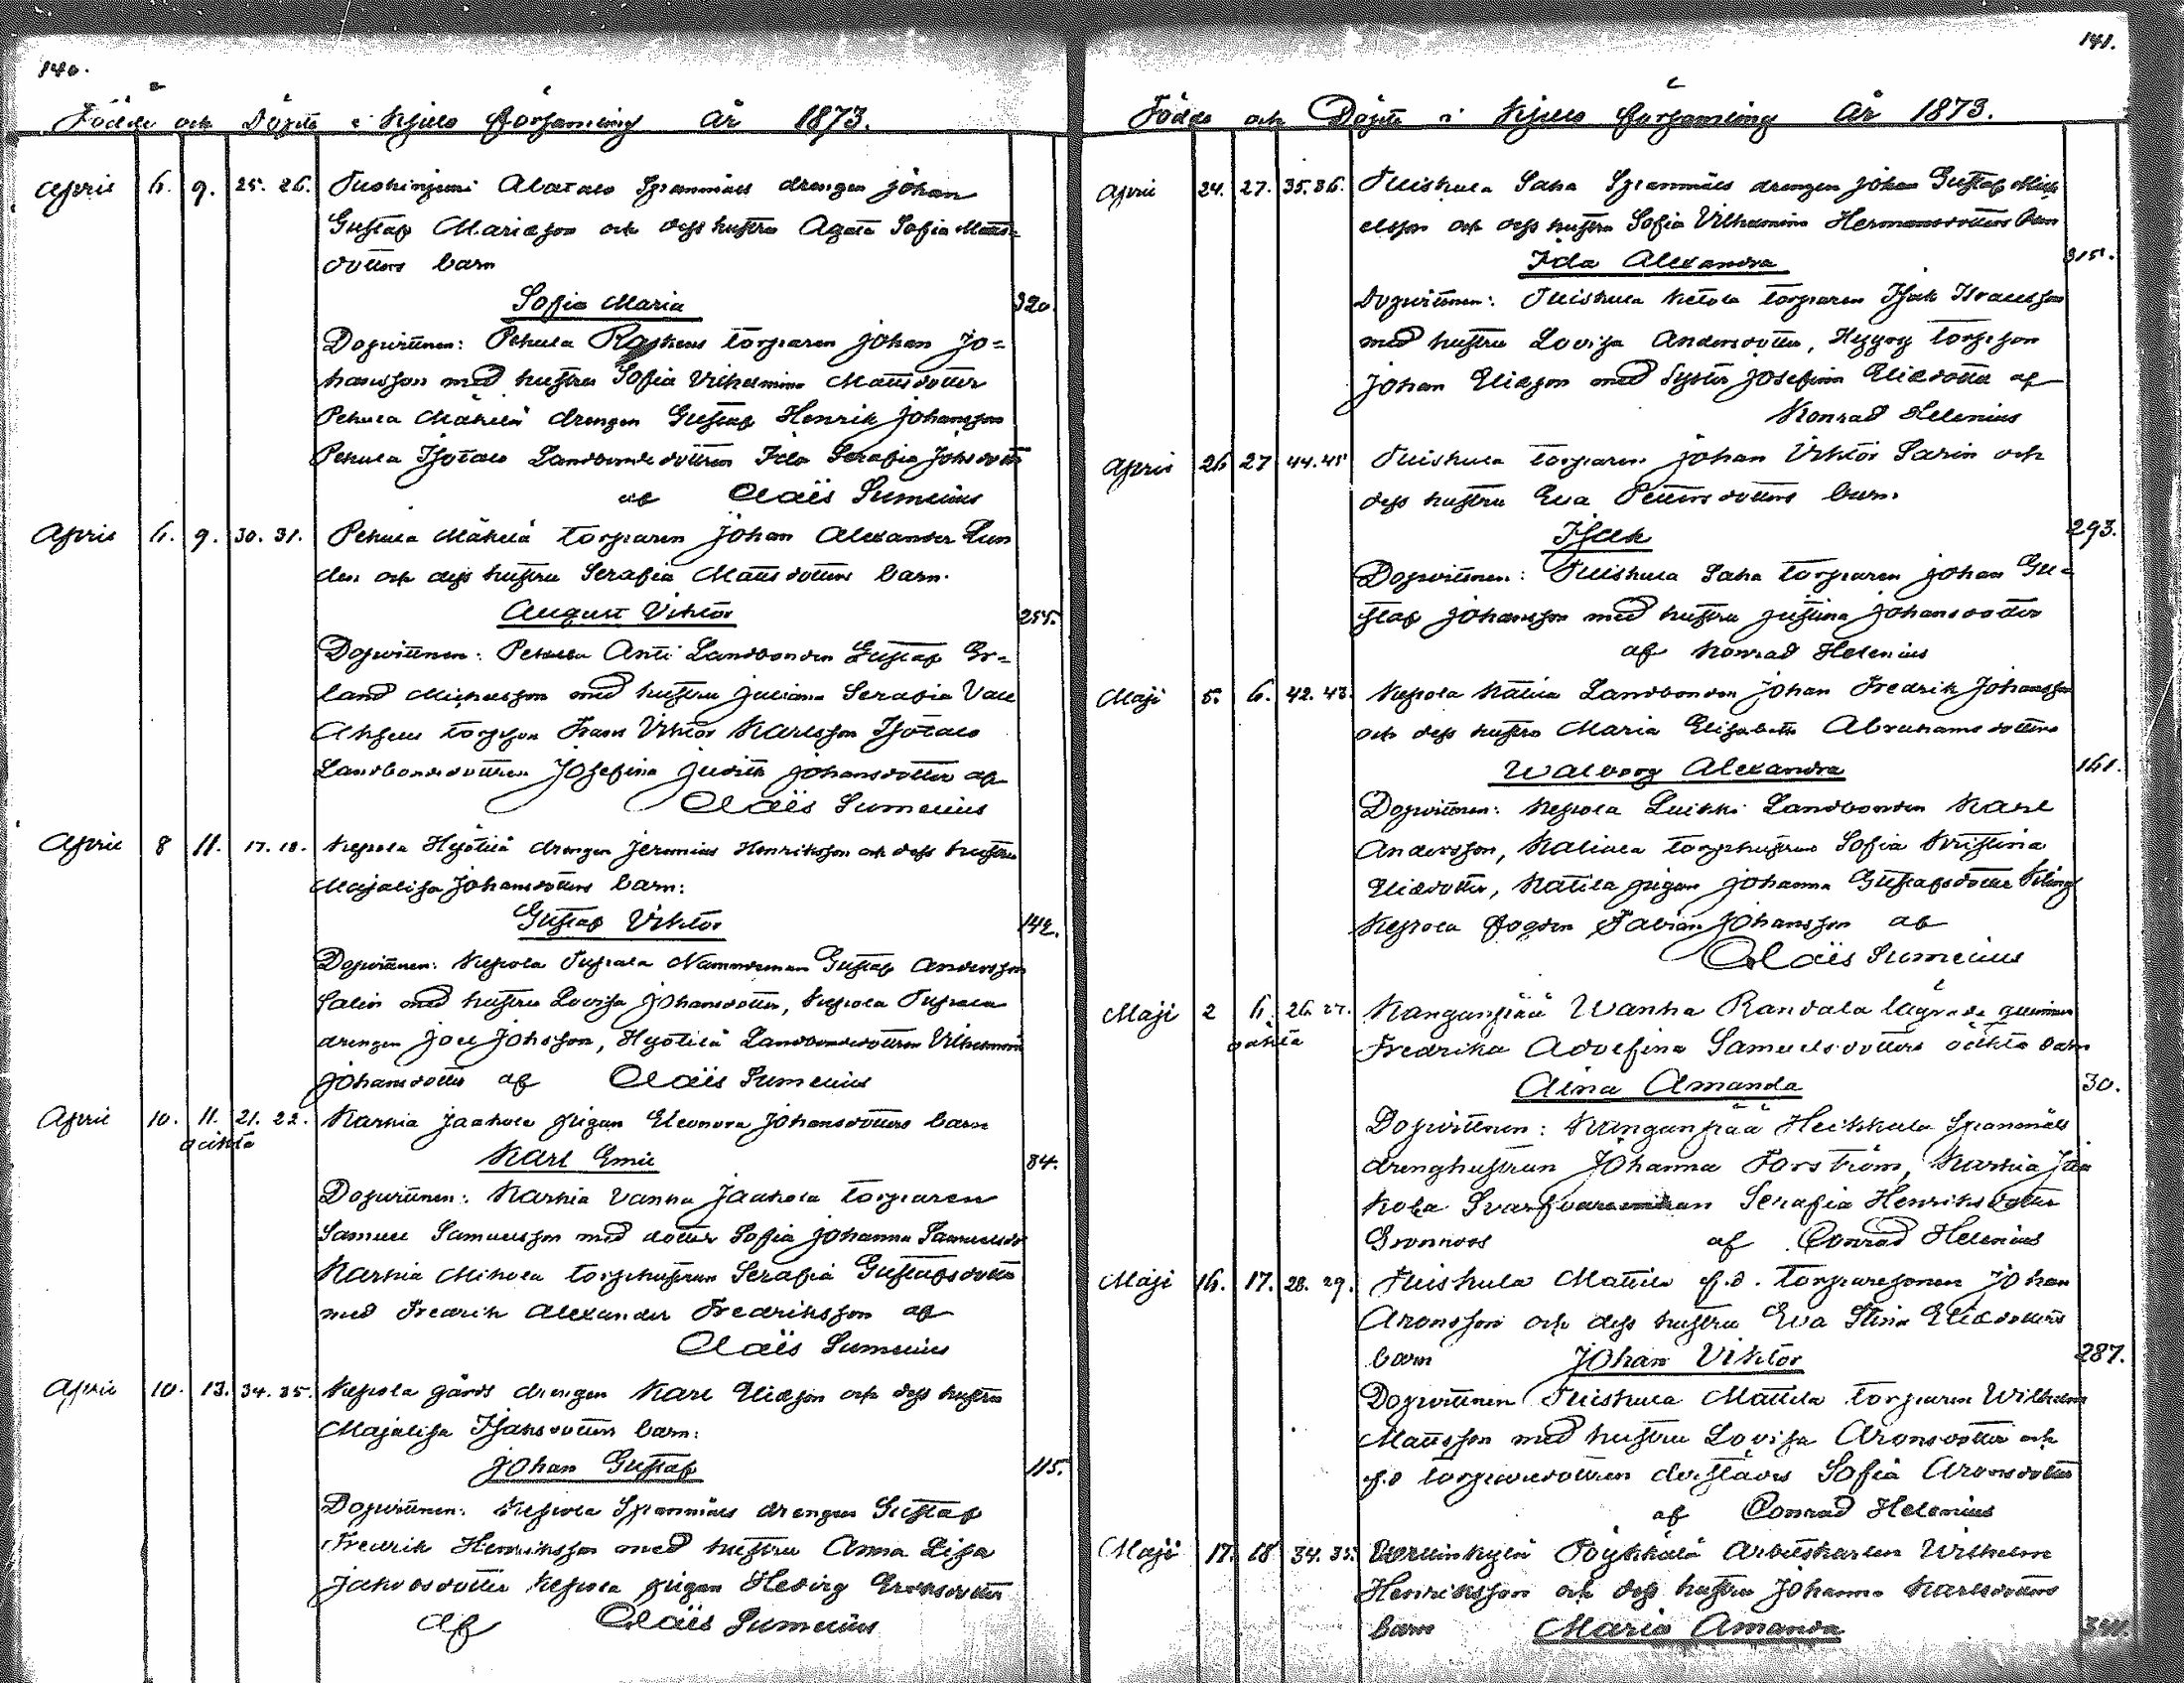 140.
Födde och Döpte i Kjulo församling År 1873.
April 6. 9. 25. 26. Tuohiniemi Alatalo Spanmåls drengen Johan
Gustaf Mariason och dess hustru Agata Sofia Matts-
dotters barn
Sofia Maria 320.
Dopvittnen: Pehula Raskens torparen Johan Jo-
hansson med hustru Sofia Vilhelmina Mattsdotter
Pehula Mäkelä drengen Gustaf Henrik Johansson
Pehula Isotalo Landbondedottren Ida Serafia Johsdotter
af Claës Sumelius
April 6. 9. 30. 31. Pehula Mäkelä torparen Johan Alexander Lun
den och dess hustru Serafia Matts dotters barn.
August Viktor 255.
Dopvittnen: Pehula Anti Landbonden Gustaf Er-
land Michelsson med hustru Juliana Serafia Vall
torpson Frans Viktor Karlsson Isotalo
Landbondedottren Josefina Judith Johansdotter af
Claës Sumelius
April 8 11. 17. 18. Kepola Hyötilä drengen Jeremias Henriksson och dess hustru
Majalisa Johansdotters barn:
Gustaf Viktor 142.
Dopvittnen: Kepola Tupala Nämndeman Gustaf Andersson
Salin med hustru Lovisa Johansdotter, Kepola Tupala
drengen Joel Johsson, Hyötilä Landbondedottren Vilhelmina
Johansdotter af Claës Sumelius
April 10. 11. 21. 22. Karhia Jaakola pigan Eleonora Johansdotters barn
oäkta
Karl Emil 84.
Dopvittnen: Karhia Vanha Jaakola torparen
Samuel Samuelsson med dotter Sofia Johanna Samuelsdr
Karhia Mikola torphustrun Serafia Gustafsdotter
med Fredrik Alexander Fredriksson af
Claës Sumelius
April 10. 13. 34. 35. Kepola gårds drengen Karl Eliasson och dess hustru
Majalisa Isaksdotters barn:
Johan Gustaf 115.
Dopvittnen: Kepola Spanmåls drengen Gustaf
Fredrik Henriksson med hustru Anna Lisa
Jakobsdotter Kepola pigan Hedvig Eriksdotter
af Claës Sumelius
141.
Födde och Döpte i Kjulo församling År 1873.
April 24. 27. 35. 36. Tuiskula Saha Spanmåls drengen Johan Gustaf Mich
elsson och dess hustru Sofia Vilhelmina Hermansdotters barn
Ida Alexandra 315.
Dopvittnen: Tuiskula Ketola torparen Isak Israelsson
med hustru Lovisa Andersdotter, torpson
Johan Eliasson med Syster Josefina Eliasdotter af
Konrad Helenius
April 26 27 44. 45 Tuiskula torparen Johan Viktor Sarin och
dess hustru Eva Pettersdotters barn.
Isak 293.
Dopvittnen: Tuiskula Saha torparen Johan Gu-
staf Johansson med hustru Justina Johansdotter
af Konrad Helenius
Maji 5. 6. 42. 43. Kepola Kätilä Landbonden Johan Fredrik Johansson
och dess hustru Maria Elisabeth Abrahamsdotters
Walborg Alexandra 161.
Dopvittnen: Kepola Luikki Landbonden Karl
Andersson, torphustrun Sofia Kristina
Eliasdotter, Kätilä pigan Johanna Gustafsdotter
Kepola fogden Fabian Johansson af
Claës Sumelius
Maji 2 6. 26. 27. Kanganpää Wanha Randala lägrade quinnan
oäkta Fredrika Adolfina Samuelsdotters oäkta barn
Aina Amanda 30.
Dopvittnen: Kanganpää Heikkula Spanmåls
drenghustrun Johanna Forström, Karhia Jaa
kola Serafia Henriksdotter
Grönroos af Conrad Helenius
Maji 16. 17. 28. 29. Tuiskula Mattila f.d. torparesonen Johan
Aronsson och dess hustru Eva Stina Eliasdotters
barn Johan Viktor 287.
Dopvittnen Tuiskula Mattila torparen Wilhelm
Mattsson med hustru Lovisa Aronsdotter och
f.d torparedottren Sofia Aronsdotter
af Conrad Helenius
Maji 17. 18 34. 35. Pöykkälä Arbetskarlen Wilhelm
Henriksson och dess hustru Johanna Karlsdotters
barn Maria Amanda